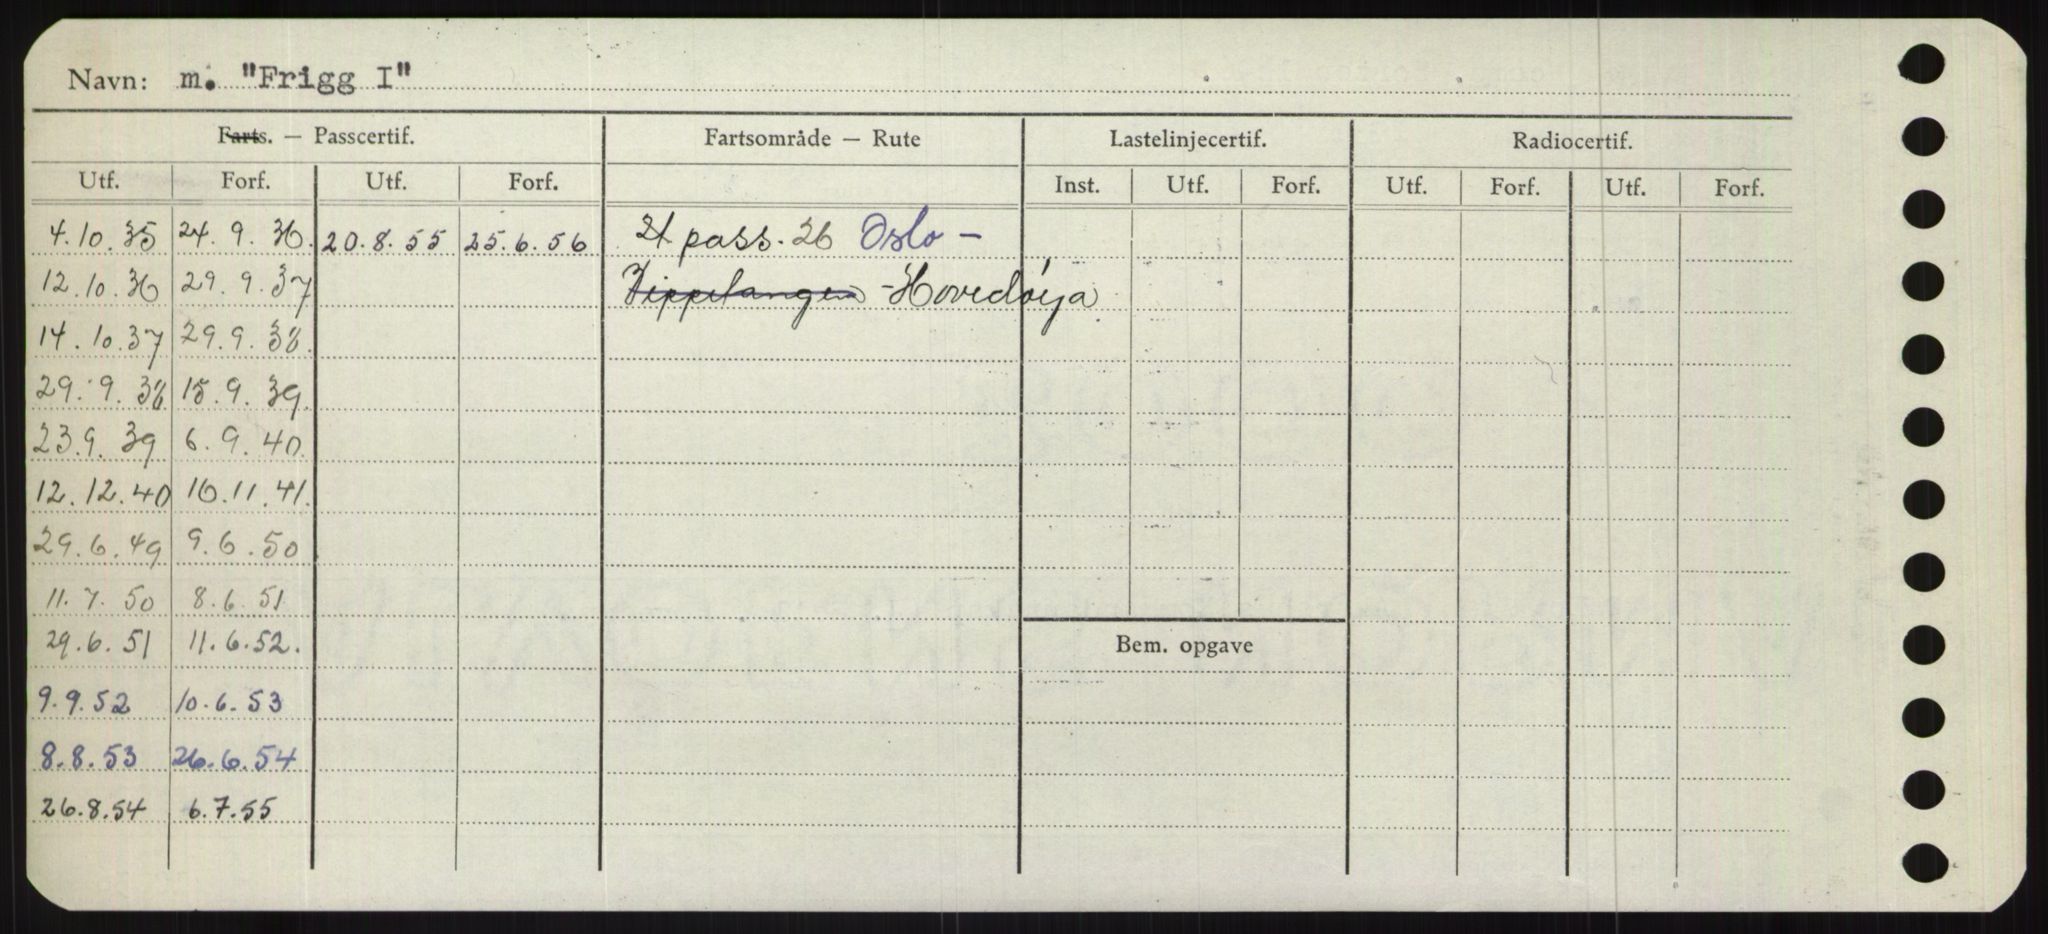 Navn: m. "Frigg I"
Farts. — Passcertif. Fartsområde — Rute Lastelinjecertif. Radiocertif.
Utf. Forf. Utf. Forf. Inst. Utf. Forf. Utf. Forf. Utf. Forf.
4.10.35 24.9.36. 20.8.55 25.6.56 pass. 26 Oslo -
12.10.36 29.9.37 Vippetangen - Hovedøya
14.10.37 29.9.38.
29.9.38 15.9.39.
23.9.39 6.9.40.
12.12.40 16.11.41.
29.6.49 9.6.50
11.7.50 8.6.51
29.6.51 11.6.52.
Bem. opgave
9.9.52 10.6.53
8.8.53 26.6.54
26.8.54 6.7.55